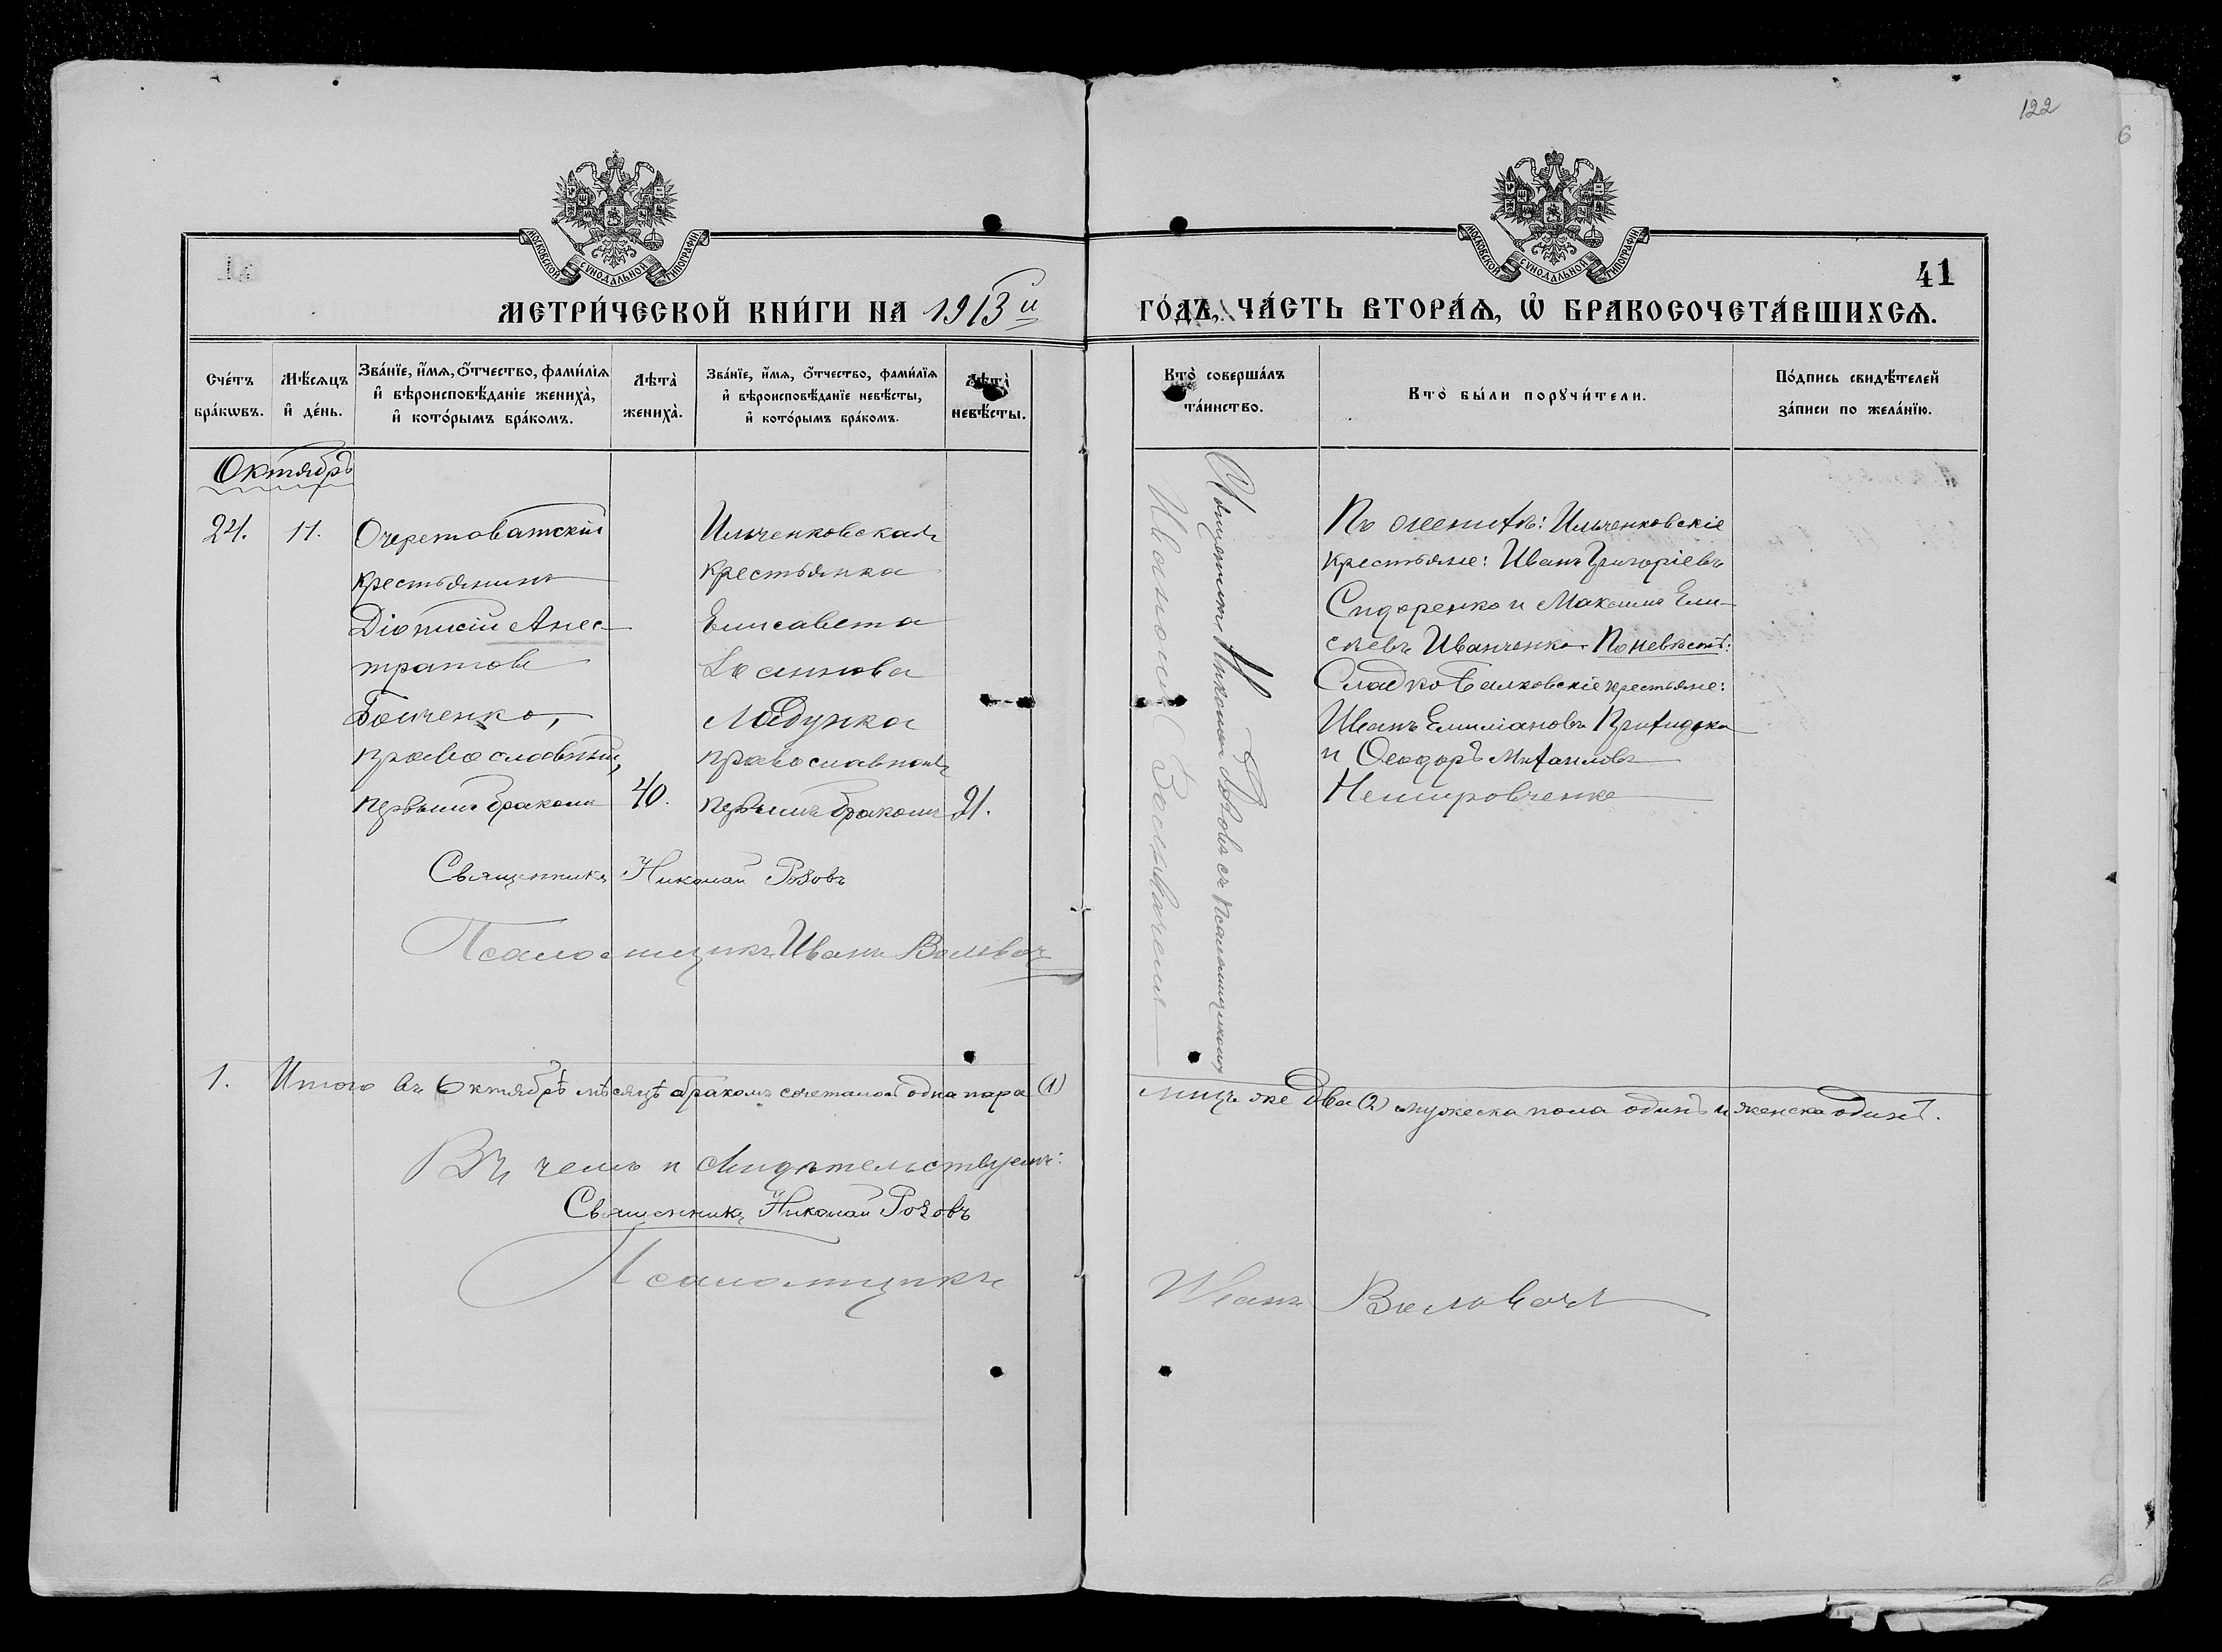 122
6
МОСКОВСКОЙ СѴНОДАЛЬНОЙ ТИПОГРАФІИ
МОСКОВСКОЙ СѴНОДАЛЬНОЙ ТИПОГРАФІИ
41
МЕТРИ́ЧЕСКОЙ КНИ́ГИ НА 1913й ГО́ДЪ, ЧА́СТЬ ВТОРА́Ѧ, Ѡ҆ БРАКОСОЧЕТА́ВШИХСѦ.
Сче́тъ бра́кѡвъ.
Мѣ́сѧцъ и҆ де́нь.
Зва́нїе, и҆́мѧ, ѻ҆́тчество, фами́лїѧ и҆ вѣроисповѣ́данїе жениха̀, и҆ кото́рымъ бра́комъ.
Лѣта̀ жениха̀.
Зва́нїе, и҆́мѧ, ѻ҆́тчество, фами́лїѧ и҆ вѣроисповѣ́данїе невѣ́сты, и҆ кото́рымъ бра́комъ.
Лѣта̀ невѣ́сты.
Кто̀ соверша́лъ та́инство.
Кто̀ бы́ли порꙋчи́тели.
По́дпись свидѣ́телей за́писи по жела́нїю.
Октябрь
24.
11.
Очеретоватскій
крестьянинъ
Діонисій Анес-
тратовъ
Бойченко,
православный,
первымъ бракомъ
40.
Ильченковская
крестьянка
Елисавета
Іоаннова
Ладунка
православная
первымъ бракомъ
21.
Священникъ Николай Розовъ
Псаломщикъ Иванъ Воловачъ
Священникъ Николай Розовъ съ псаломщикомъ
Иваномъ
По женихѣ: Ильченковскіе
крестьяне: Иванъ Григоріевъ
Сидоренко и Максимъ Ели-
сеевъ Иванченко. По невѣстѣ:
Сладкобалковскіе крестьяне:
Иванъ Емиліановъ Прихидько
и Ѳеодоръ Михаиловъ
Немировченко
1. Итого въ Октябрѣ мѣсяцѣ бракомъ сочеталось одна пара (1)
лицъ же два (2) мужеска пола одинъ и женска одинъ.
Въ чемъ и свидѣтельствуемъ:
Священникъ Николай Розовъ
Псаломщикъ Иванъ Воловачъ